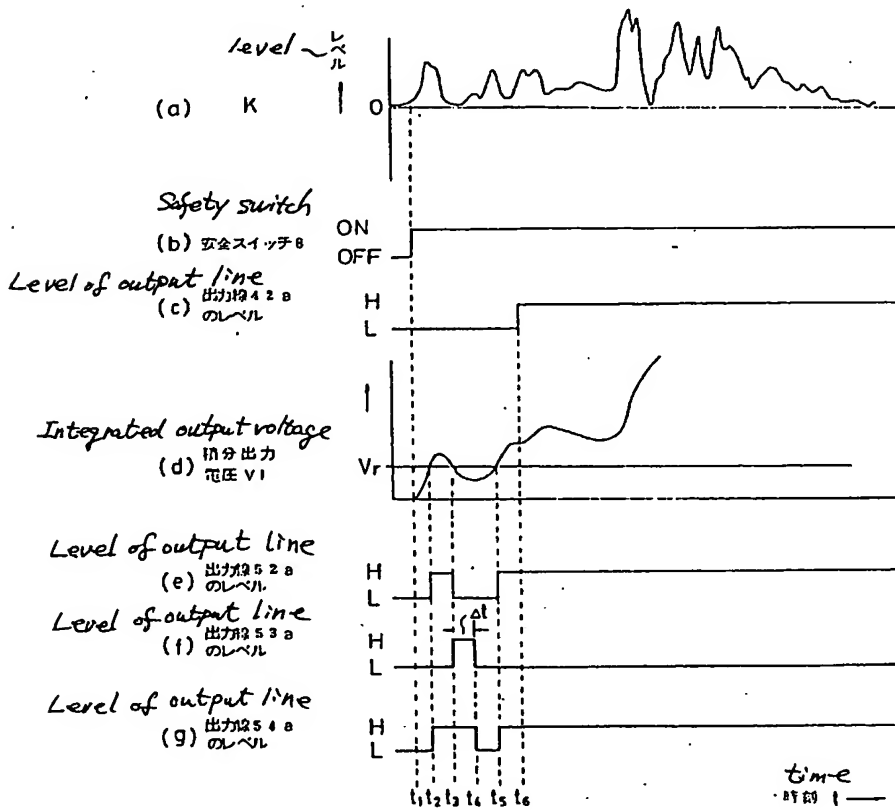 level
レベル
(a) K
0
Safety switch
(b) 安全スイッチ8
ON
OFF
Level of output line
(c) 出力線42a
のレベル
H
L
Integrated output voltage
(d) 積分出力
電圧VI
Vr
Level of output line
(e) 出力線52a
のレベル
H
L
Level of output line
(f) 出力線53a
のレベル
H
L
Δt
Level of output line
(g) 出力線54a
のレベル
H
L
t1 t2 t3 t4 t5 t6
time
時刻 t